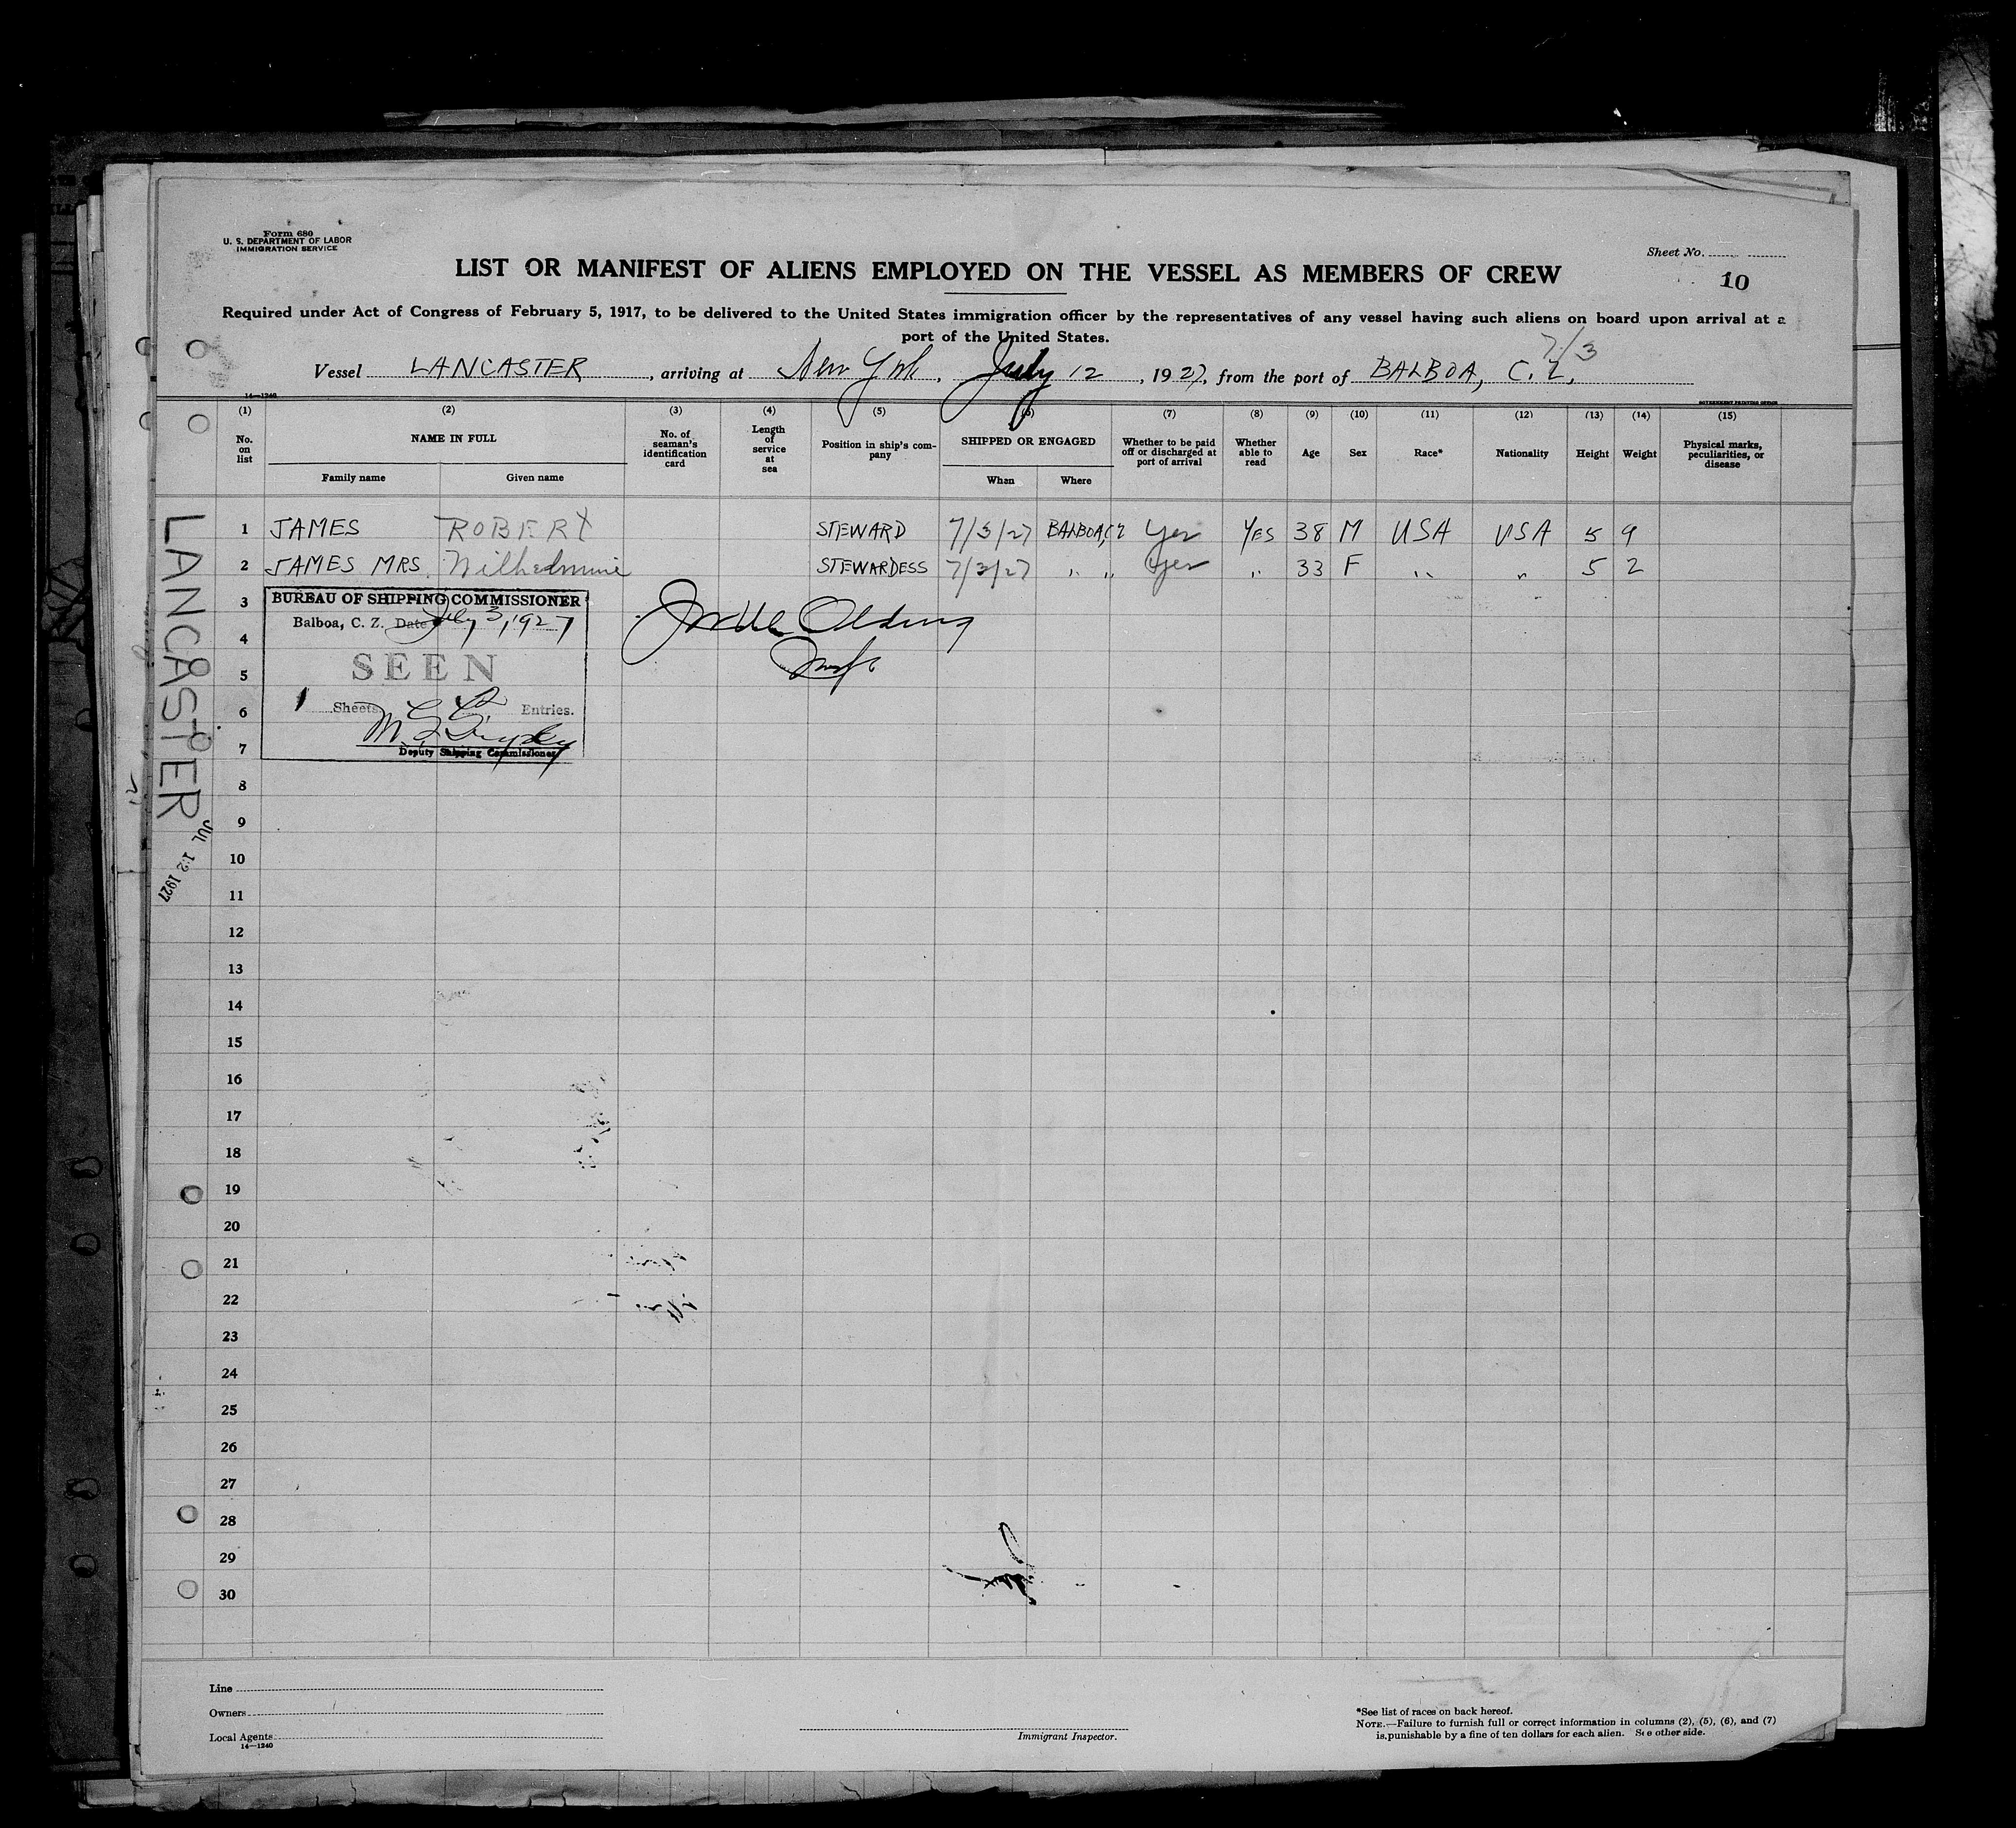 Form 680
U. S. DEPARTMENT OF LABOR
IMMIGRATION SERVICE
Sheet No.
10
LIST OR MANIFEST OF ALIENS EMPLOYED ON THE VESSEL AS MEMBERS OF CREW
Required under Act of Congress of February 5, 1917, to be delivered to the United States immigration officer by the representatives of any vessel having such aliens on board upon arrival at a
port of the United States.
7/3
Vessel LANCASTER, arriving at New York, July 12, 1927, from the port of BALBOA, C. Z.
14—1240
GOVERNMENT PRINTING OFFICE
(1) (2) (3) (4) (5) (6) (7) (8) (9) (10) (11) (12) (13) (14) (15)
No. on list NAME IN FULL Family name Given name No. of seaman's identification card Length of service at sea Position in ship's company SHIPPED OR ENGAGED When Where Whether to be paid off or discharged at port of arrival Whether able to read Age Sex Race* Nationality Height Weight Physical marks, peculiarities, or disease
1 JAMES ROBERT STEWARD 7/3/27 BALBOA, CZ Yes YES 38 M USA USA 5 9
2 JAMES MRS. Wilhelmine STEWARDESS 7/3/27 " " Yes " 33 F " " 5 2
3
4
5
6
7
8
9
10
11
12
13
14
15
16
17
18
19
20
21
22
23
24
25
26
27
28
29
30
BUREAU OF SHIPPING COMMISSIONER
Balboa, C. Z. Date July 3, 1927
SEEN
1 Sheets 2 Entries.
Deputy Shipping Commissioner
LANCASTER
JUL 12 1927
Line
Owners
Local Agents
14—1240
Immigrant Inspector.
*See list of races on back hereof.
NOTE.—Failure to furnish full or correct information in columns (2), (5), (6), and (7)
is punishable by a fine of ten dollars for each alien. See other side.